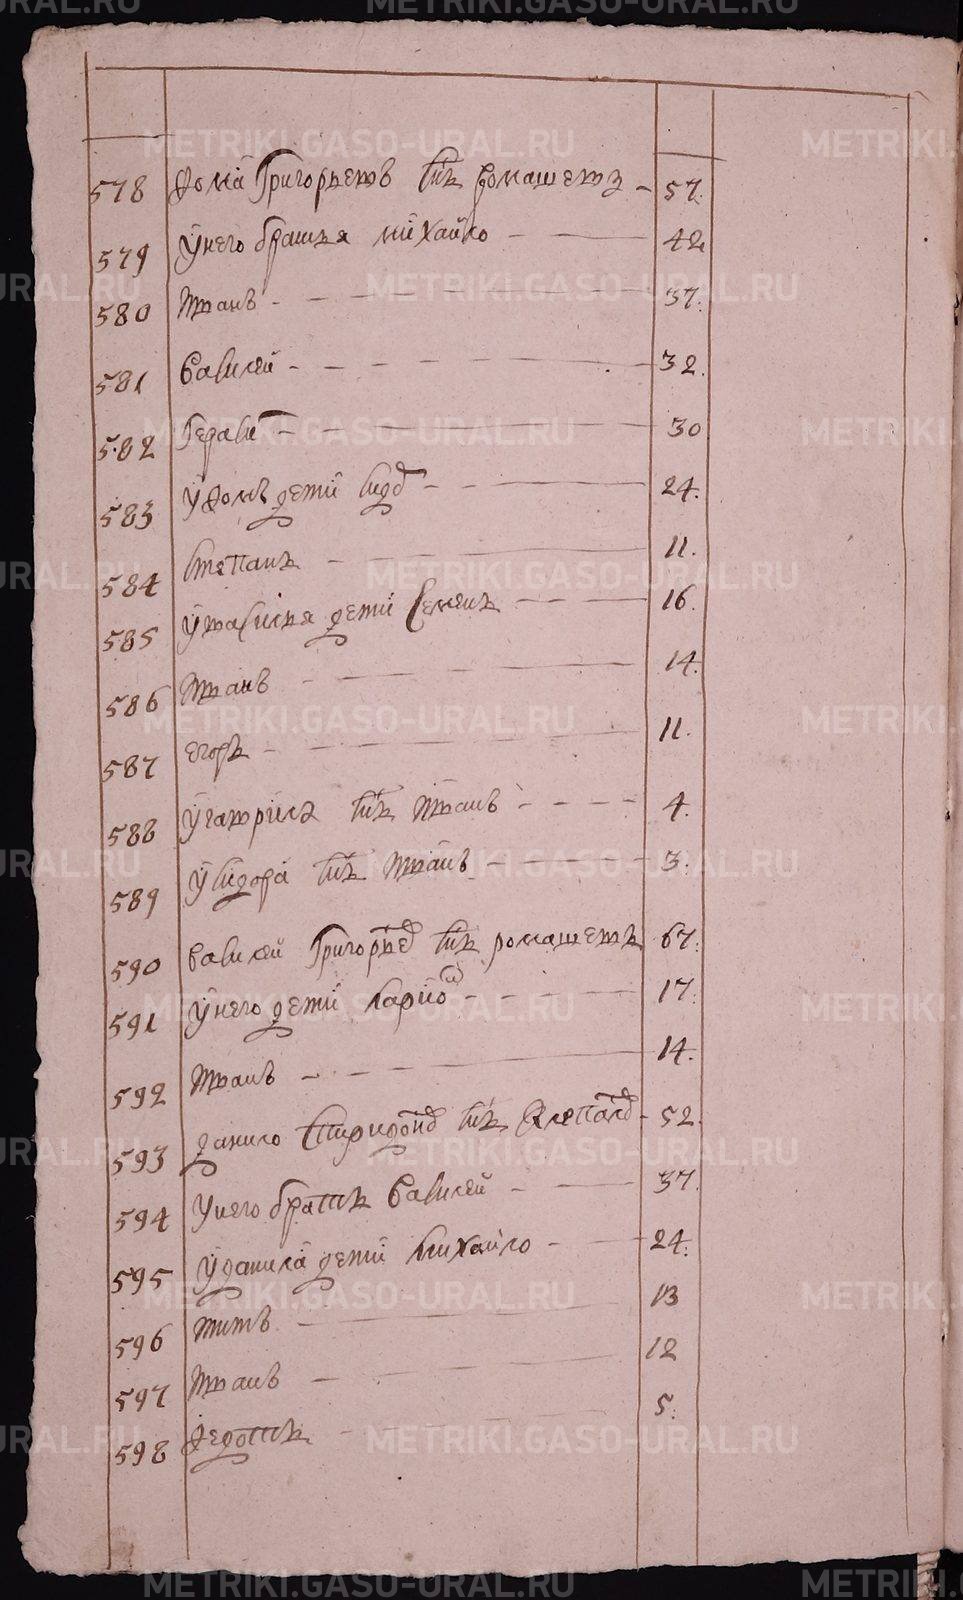 578 Фома Григорьевъ снъ Ромашевъ - 57.
579 У него братья михайло - - 42
580 Иванъ - - - 37.
581 Василей - - - 32.
582 - - - 30
583 У Фомы дети - - 24.
584 Степанъ - - - 11.
585 дети Семенъ - - 16.
586 Иванъ - - - 14.
587 егоръ - - - 11.
588 У гаврила снъ Иванъ - - - 4.
589 У сидора снъ Иванъ - - - 3.
590 Василей Григорьев снъ ромашевъ 67.
591 У него дети - - - 17.
592 Иванъ - - - 14.
593 данило Спиридонов снъ - 52.
594 У него братъ Василей - - 37.
595 У данила дети михайло - - 24.
596 титъ - - - 13
597 Иванъ - - - 12
598 Федотъ - - - 5.
METRIKI.GASO-URAL.RU